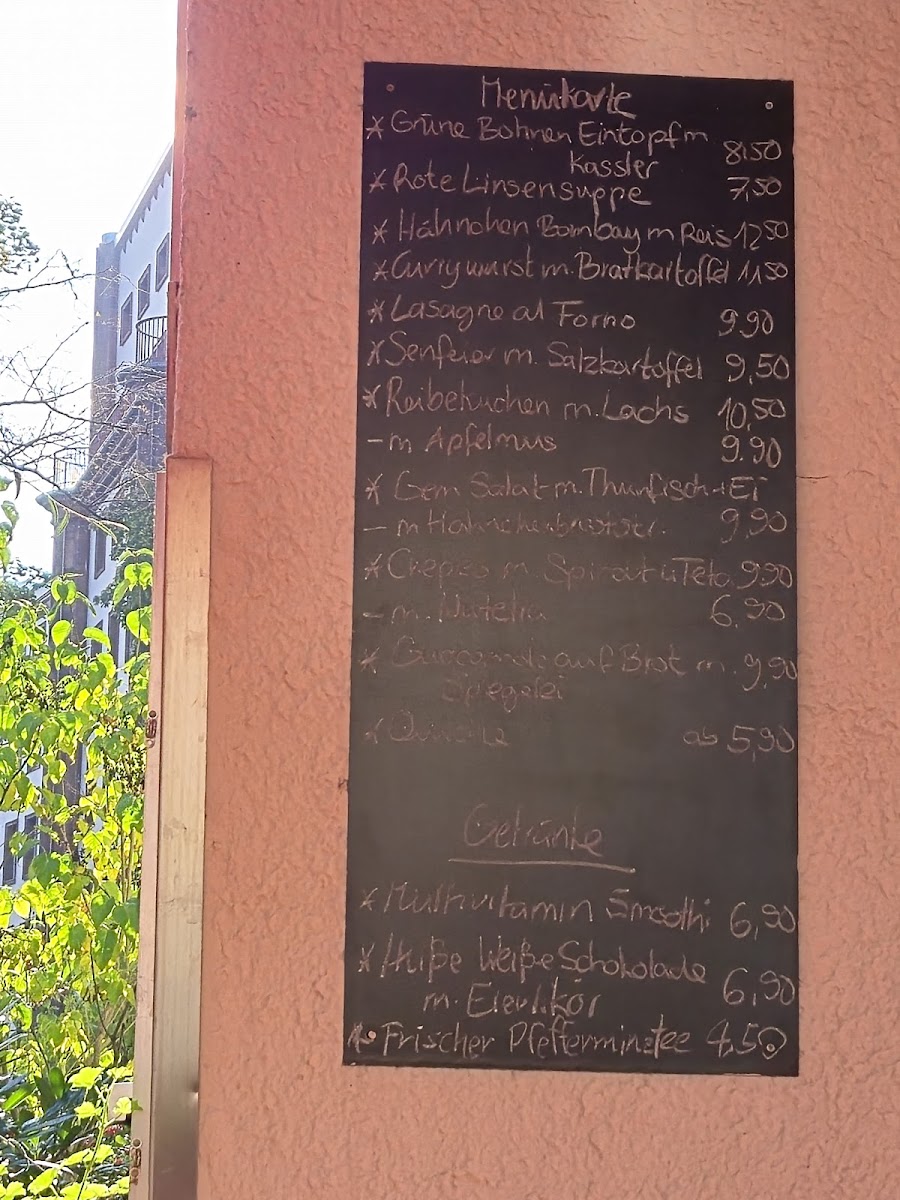 Menükarte
* Grüne Bohnen Eintopf m
Kassler 8,50
* Rote Linsensuppe 7,50
* Hähnchen Bombay m Reis 12 50
* Currywurst m. Bratkartoffel 11,50
* Lasagne al Forno 9 90
* Senfeier m. Salzkartoffel 9,50
* Reibekuchen m. Lachs 10,50
- m Apfelmus 9.90
* Gem Salat m. Thunfisch + Ei
- m Hähnchenbruststr. 9,90
* Crepes m. Spinat u Feta 9,90
- m. Nutella 6,90
* auf Brot m. 9,90
Spiegelei
* Quiche ab 5,90
Getränke
* Multivitamin Smoothi 6,90
* Heiße Weiße Schokolade
m. Eierlikör 6,90
* Frischer Pfefferminztee 4,50